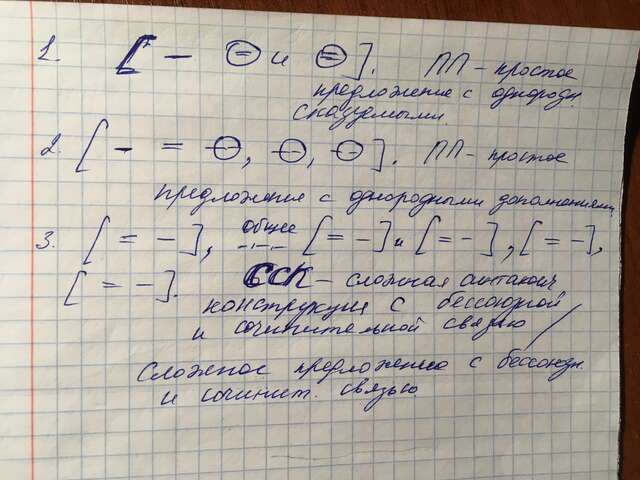 1. [ — ⊖ и ⊜ ]. ПП – простое
предложение с однородн.
сказуемыми.
2. [ – = ⊖, ⊖, ⊖ ]. ПП – простое
предложение с однородными дополнениями
3. [ = – ], общее [ = – ] и [ = – ], [ = – ],
[ = – ]. ССК – сложная синтаксич
конструкция с бессоюзной
и сочинительной связью /
Сложное предложение с бессоюзн.
и сочинит. связью